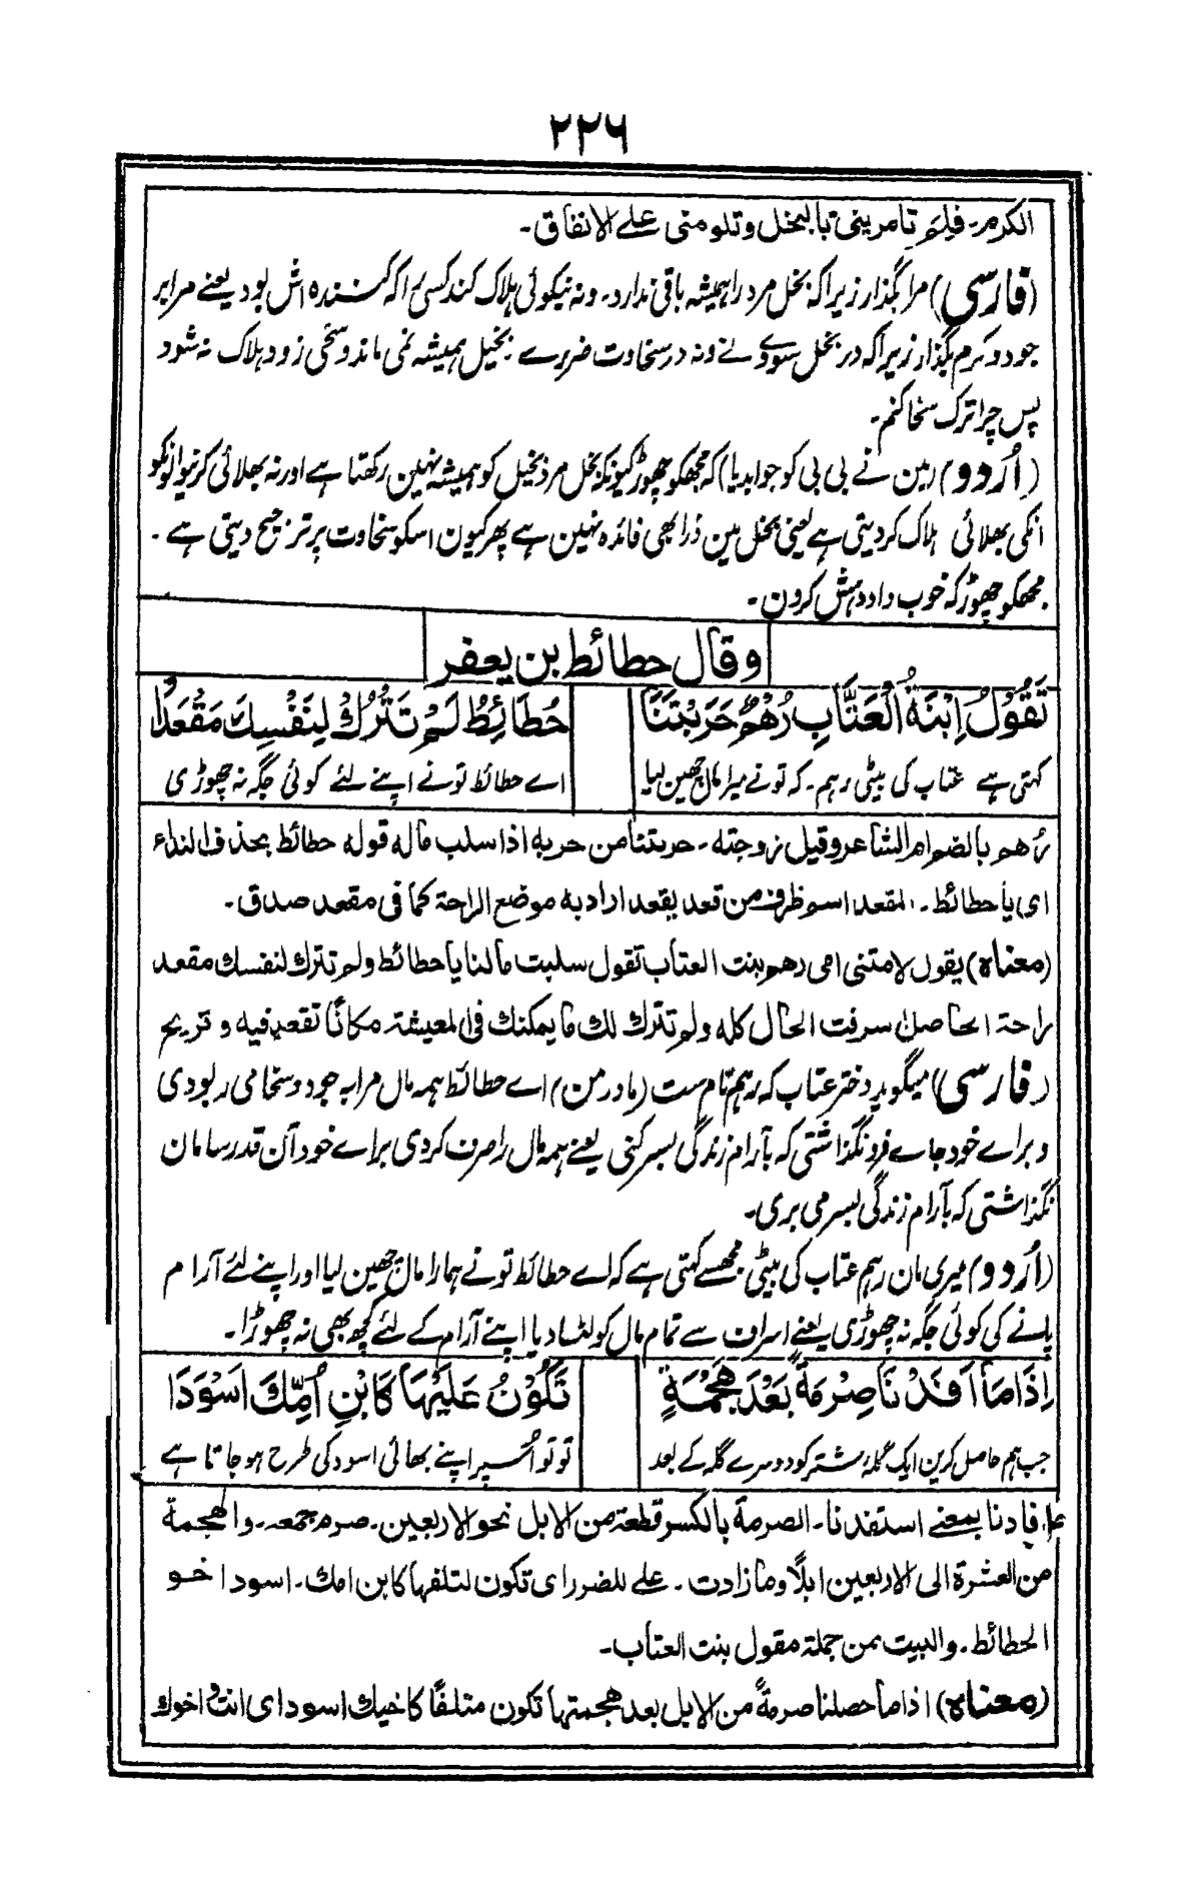 ٢٢٦
الكرم۔ فلِمَ تامريني بالبخل وتلومني على الانفاق۔
(فارسی) مرا بگذار زیراکہ بخل مرد را ہمیشہ باقی ندارد۔ ونہ نیکوئی ہلاک کند کسی را کہ کنندہ اش بود یعنے مرا بر
جود و کرم بگذار زیراکہ در بخل سودے نے ونہ در سخاوت ضررے بخیل ہمیشہ نمی ماند و سخی زود ہلاک نہ شود
پس چرا ترک سخا کنم۔
(اُردو) (مین نے بی بی کو جواب دیا) کہ مجھکو چھوڑ کیونکہ بخل مرد بخیل کو ہمیشہ نہین رکھتا ہے اور نہ بھلائی کرنیوالونکو
انکی بھلائی ہلاک کردیتی ہے یعنی بخل مین ذرا بھی فائدہ نہین ہے پھر کیون اسکو سخاوت پر ترجیح دیتی ہے۔
مجھکو چھوڑ کہ خوب داد دہش کرون۔
وقال حطائط بن يعفر
تَقُوْلُ اِبْنَةُ الْعَتَّابِ رُهْمُ حَرَبْتَنَا
حُطَائِطُ لَمْ تَتْرُكْ لِنَفْسِكَ مَقْعَدًا
کہتی ہے عتاب کی بیٹی رہم۔ کہ تونے میرا مال چھین لیا
اے حطائط تونے اپنے لئے کوئی جگہ نہ چھوڑی
رُهم بالضم ام الشاعر وقيل زوجته۔ حربتنا من حربه اذا سلب ماله قوله حطائط بحذف النداء
اى يا حطائط۔ المقعد اسم ظرف من قعد يقعد اراد به موضع الراحة كما فى مقعد صدق۔
(معناه) يقول لامتنى امى رهم بنت العتاب تقول سلبت مالنا يا حطائط ولم تترك لنفسك مقعد
راحة الحاصل سرفت الحال كله ولم تترك لك ما يمكنك فى المعيشة مكانًا تقعد فيه و تريح
(فارسی) میگوید دختر عتاب کہ رہم نام ست (مادر من) اے حطائط ہمہ مال مرا بہ جود و سخا می ربودی
و براے خود جاے فرو نگذاشتی کہ بآرام زندگی بسر کنی یعنے ہمہ مال را صرف کردی براے خود آن قدر سامان
نگذاشتی کہ بآرام زندگی بسر می بری۔
(اُردو) میری مان رہم عتاب کی بیٹی مجھسے کہتی ہے کہ اے حطائط تونے ہمارا مال چھین لیا اور اپنے لئے آرام
پانے کی کوئی جگہ نہ چھوڑی یعنے اسراف سے تمام مال کو لٹا دیا اپنے آرام کے لئے کچھ بھی نہ چھوڑا۔
اِذَا مَا اَفَدْ نَا صِرْمَةً بَعْدَ هَجْمَةٍ
تَكُوْنُ عَلَيْهَا كَابْنِ اُمِّكَ اَسْوَدَا
جب ہم حاصل کرین ایک گلۂ شتر کو دوسرے گلہ کے بعد
تو تو اُسپر اپنے بھائی اسود کی طرح ہو جاتا ہے
افادنا بمعنے استفدنا۔ الصرمة بالكسر قطعة من الابل نحو الاربعين۔ صرم جمعه۔ والهجمة
من العشرة الى الاربعين ابلًا وما زادت۔ على للضرر اى تكون لتلفها كابن امك۔ اسود اخو
الحطائط۔ والبيت من جملة مقول بنت العتاب۔
(معناه) اذا ما حصلنا صرمةً من الابل بعد هجمتها تكون متلفًا كاخيك اسود اى انت و اخوك